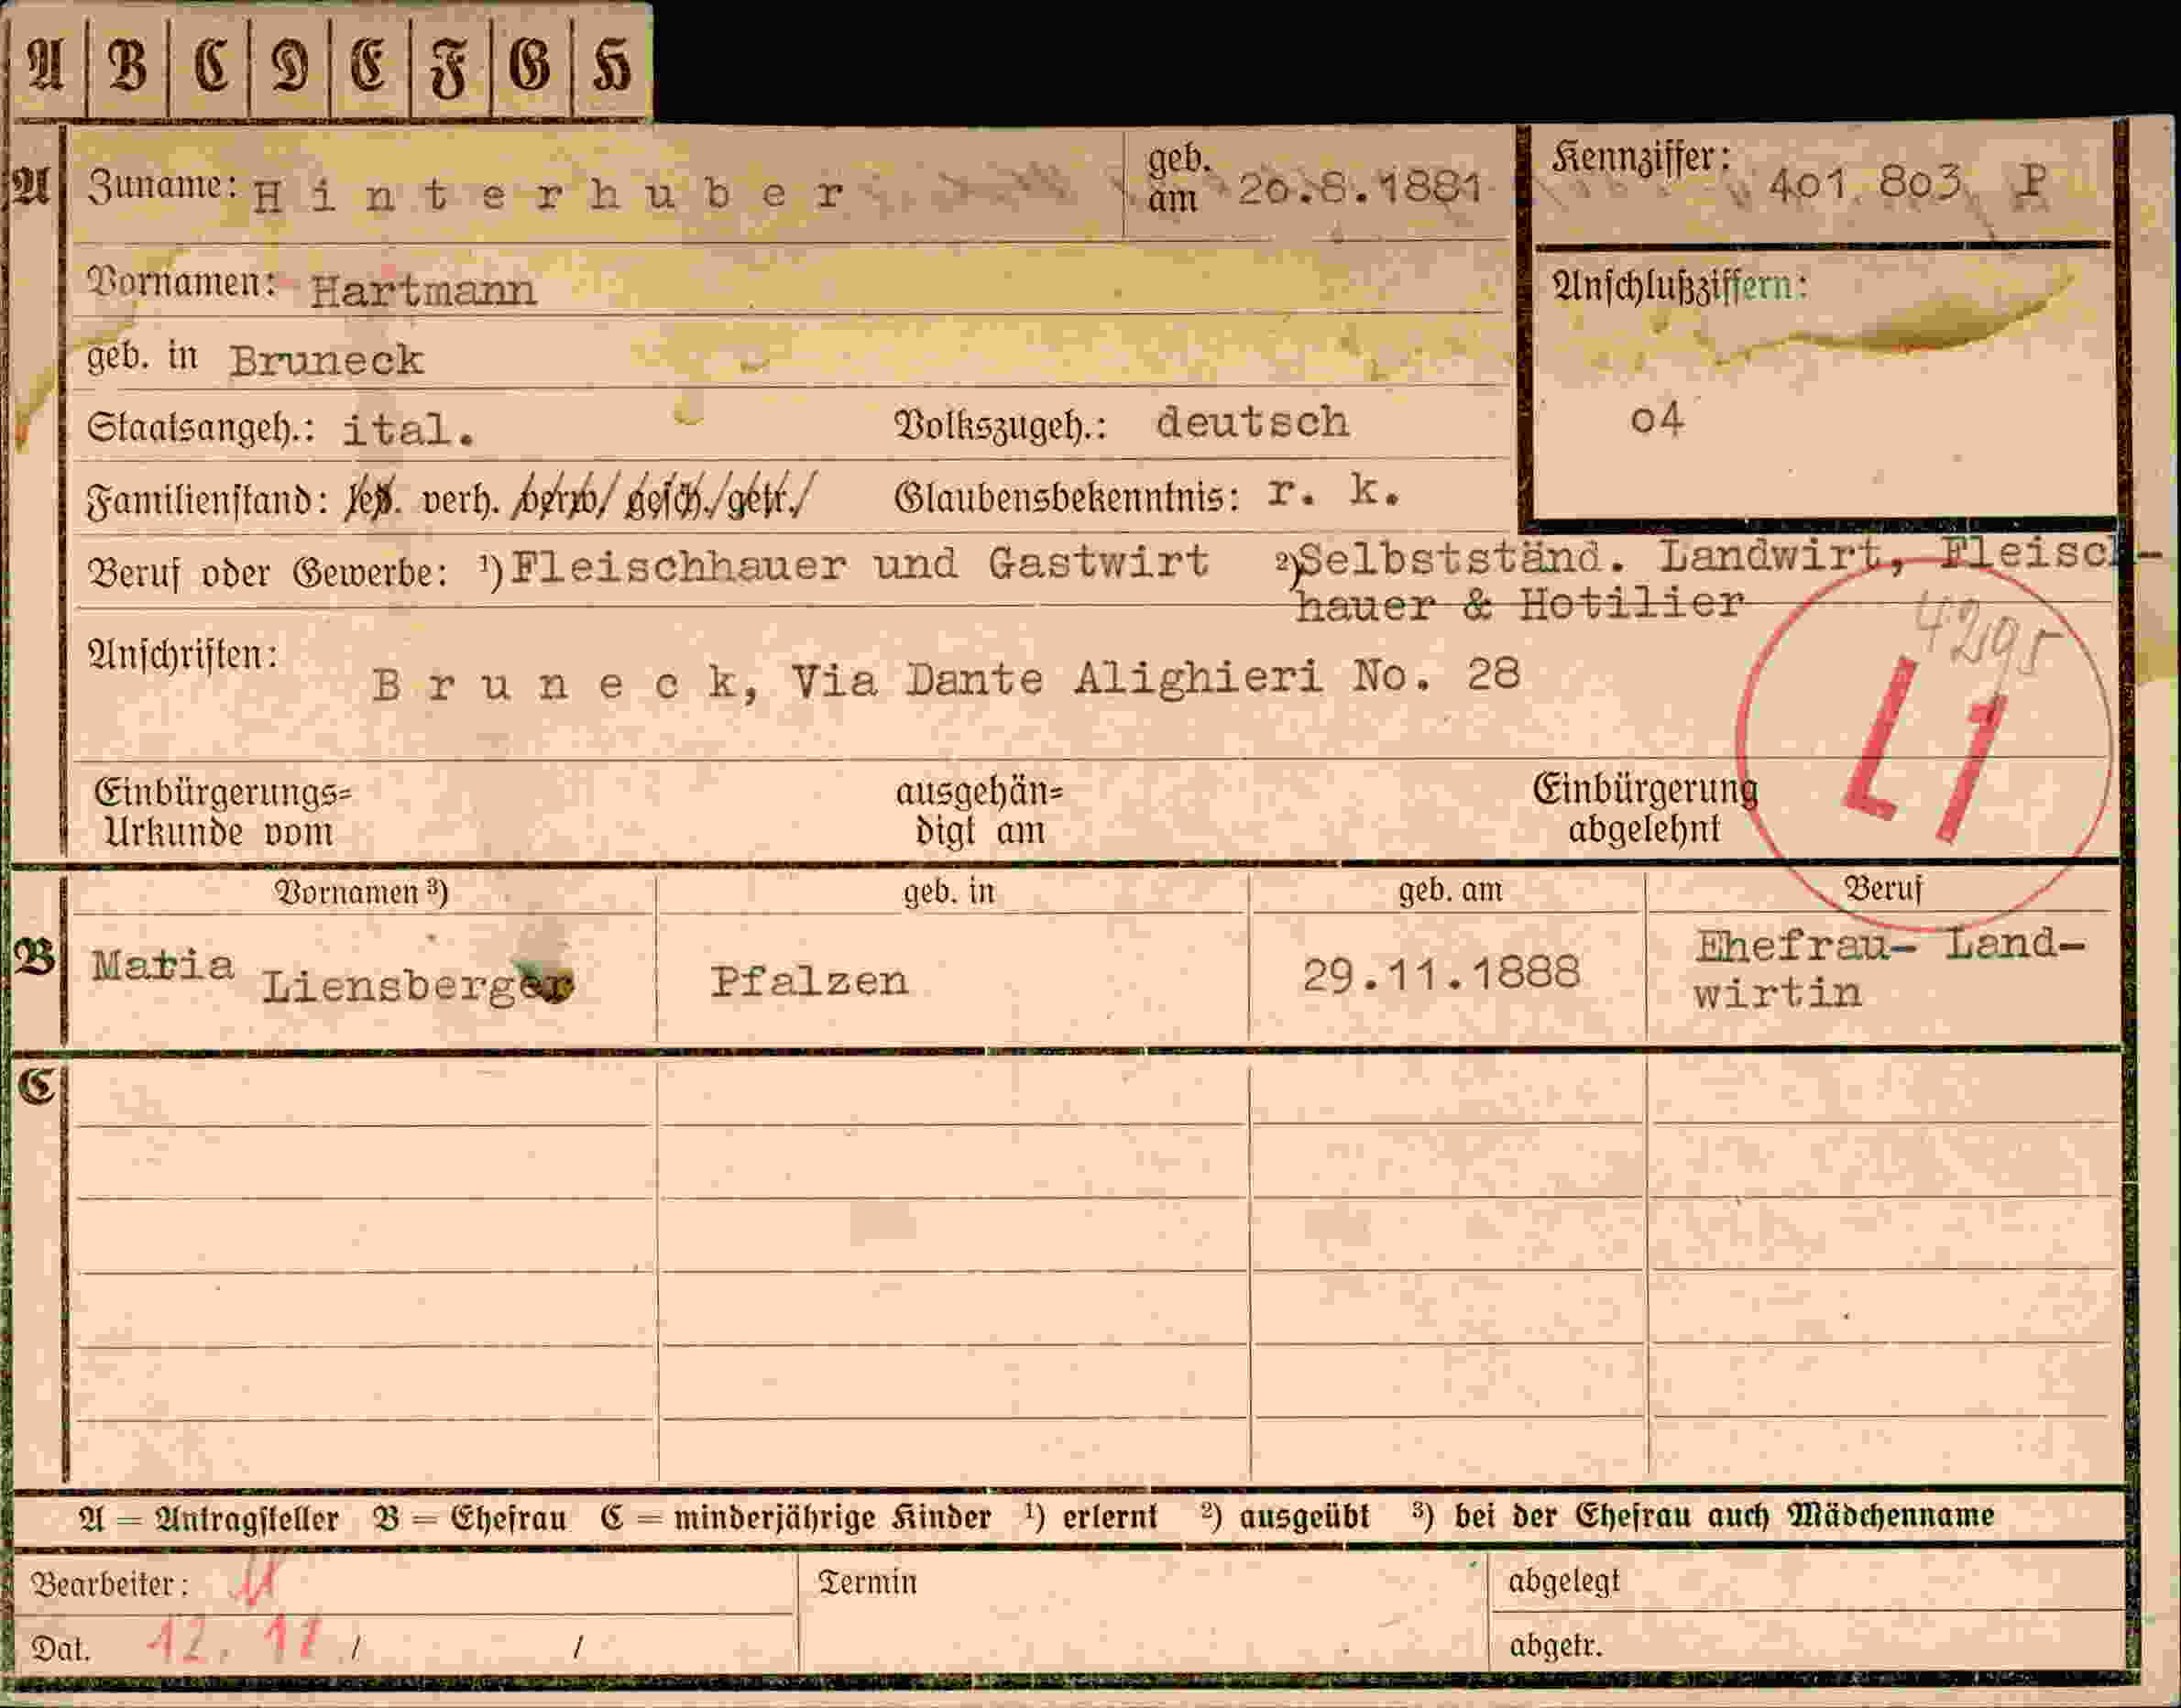 A B C D E F G H
A Zuname: H i n t e r h u b e r geb. am 20.8.1881 Kennziffer: 401 803 P
Vornamen: Hartmann Anschlußziffern:
geb. in Bruneck
Staatsangeh.: ital. Volkszugeh.: deutsch o4
Familienstand: led. verh. verw/ gesch./getr./ Glaubensbekenntnis: r. k.
Beruf oder Gewerbe: ¹) Fleischhauer und Gastwirt ²) Selbstständ. Landwirt, Fleisch-
hauer & Hotilier
4295
Anschriften:
B r u n e c k, Via Dante Alighieri No. 28
L1
Einbürgerungs= ausgehän= Einbürgerung
Urkunde vom digt am abgelehnt
Vornamen ³) geb. in geb. am Beruf
B Maria Liensberger Pfalzen 29.11.1888 Ehefrau- Land-
wirtin
C
A = Antragsteller B = Ehefrau C = minderjährige Kinder ¹) erlernt ²) ausgeübt ³) bei der Ehefrau auch Mädchenname
Bearbeiter: Termin abgelegt
Dat. 12. 11 / / abgetr.